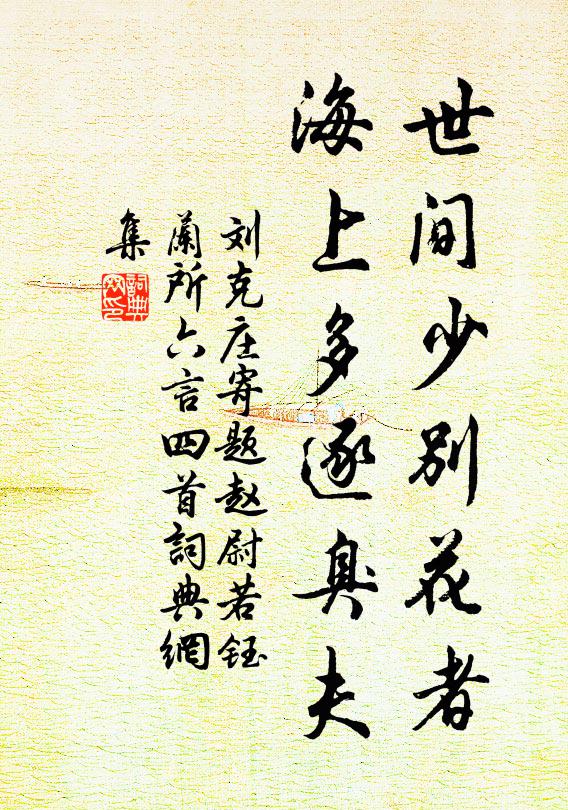 世间少别花者
海上多逐臭夫
刘克庄寄题赵尉若钰
蘭所六言四首詞典網
集
詞典
网印